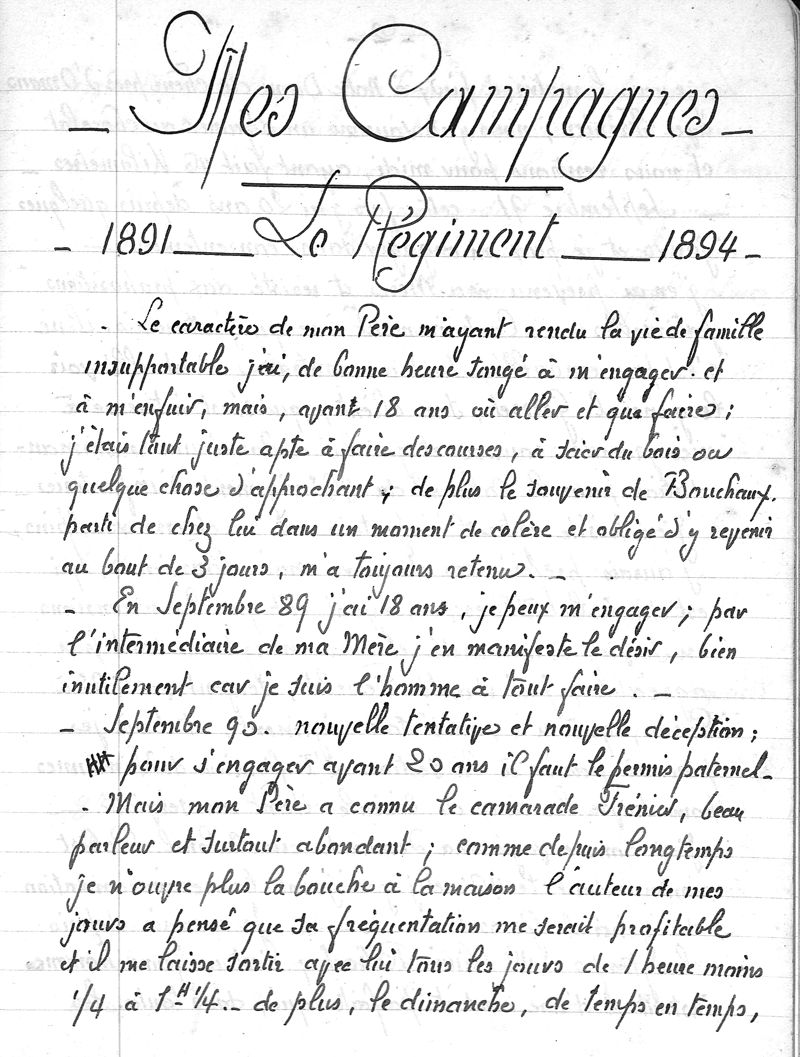 _ Mes Campagnes _
- 1891 ___ Le Régiment ___ 1894 -
- Le caractère de mon Père m'ayant rendu la vie de famille
insupportable j'ai, de bonne heure songé à m'engager. et
à m'enfuir, mais, avant 18 ans où aller et que faire ;
j'étais tout juste apte à faire des courses, à scier du bois ou
quelque chose d'approchant ; de plus le souvenir de Bouchaux.
parti de chez lui dans un moment de colère et obligé d'y revenir
au bout de 3 jours, m'a toujours retenu. _
- En Septembre 89 j'ai 18 ans, je peux m'engager ; par
l'intermédiaire de ma Mère j'en manifeste le désir, bien
inutilement car je suis l'homme à tout faire. _
- Septembre 90. nouvelle tentative et nouvelle déception ;
pour s'engager avant 20 ans il faut le permis paternel _
- Mais mon Père a connu le camarade Frénier, beau
parleur et surtout abondant ; comme depuis longtemps
je n'ouvre plus la bouche à la maison l'auteur de mes
jours a pensé que sa fréquentation me serait profitable
et il me laisse sortir avec lui tous les jours de 1 heure moins
1/4 à 1H 1/4 _ de plus, le dimanche, de temps en temps,